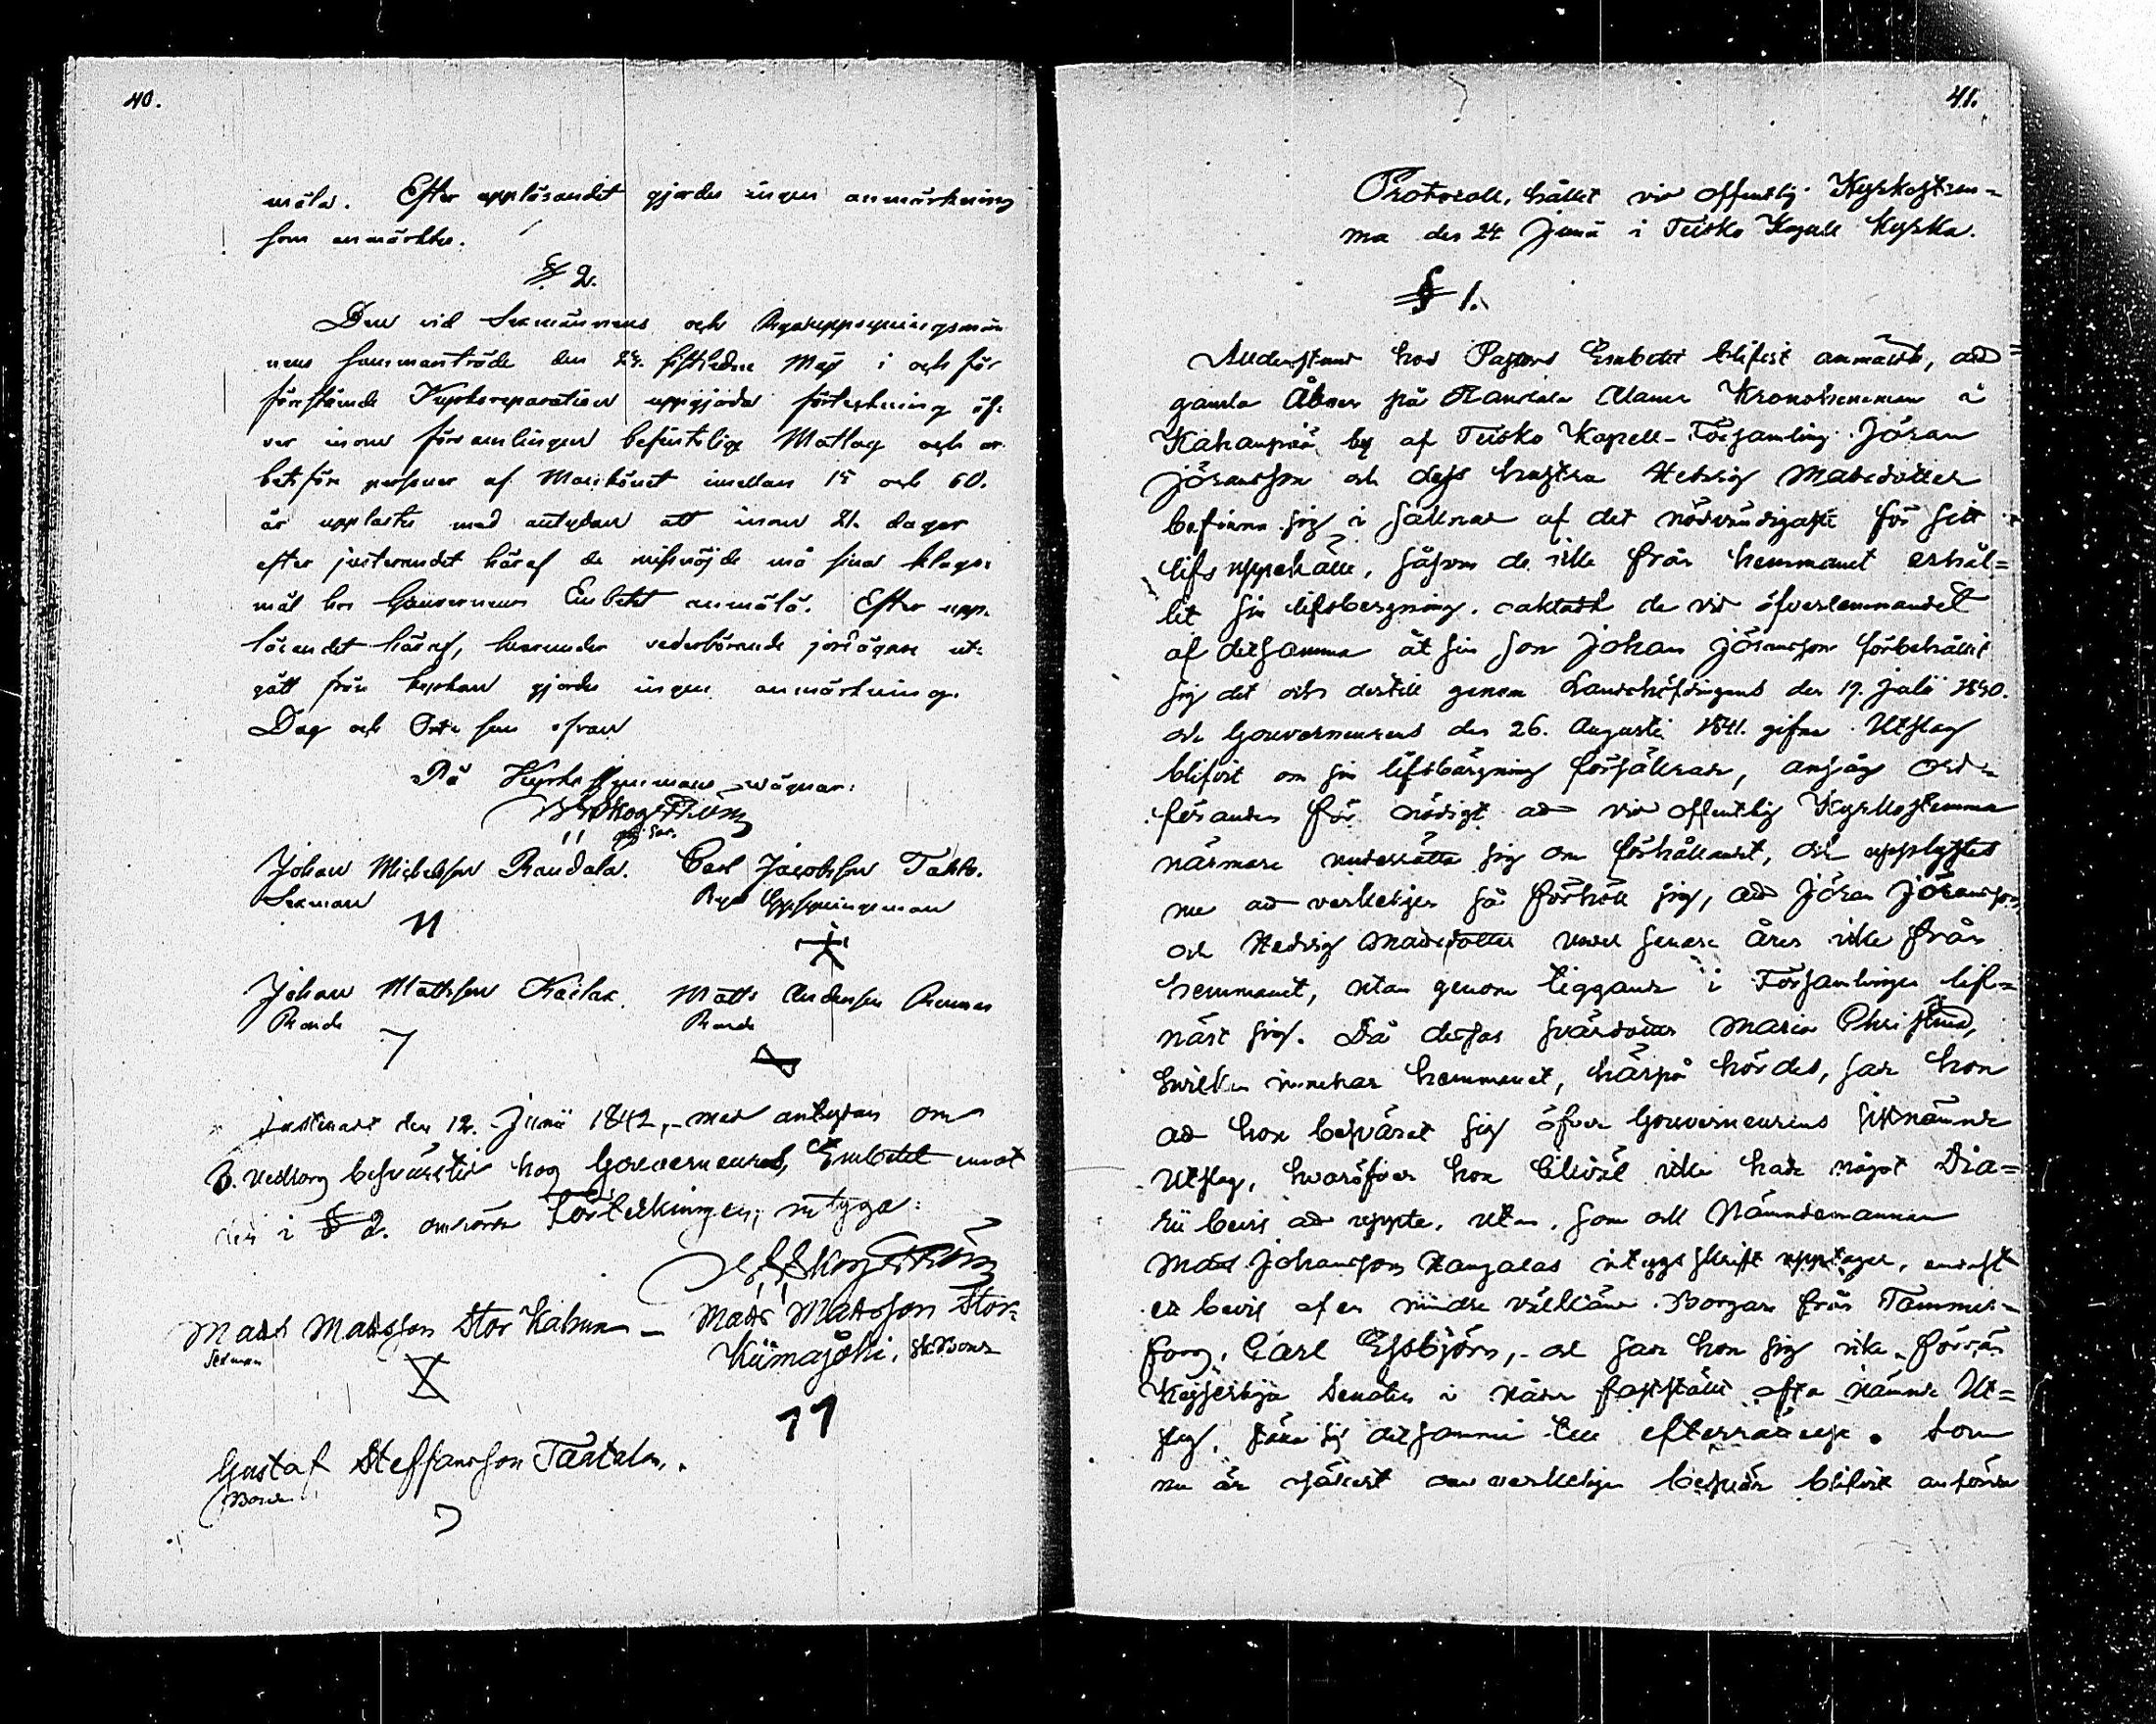 40.
mäla. Efter uppläsandet gjordes ingen anmärkning
som anmärktes.
§ 2.
Den vid Sexmännens och Byauppsyningsmän
nens sammanträde den 24. sistledne Maji i och för
förestående Kyrkoreparation uppgjorda förteckning öf-
ver inom församlingen befintelige Matlag och ar-
betsföre personer af Mankönet imellan 15 och 60.
år upplästes med antydan att inom 21. dagar
efter justerandet häraf de missnöjde må sina klago-
mål hos Gouverneurs Embetet anmäla. Efter upp-
läsandet häraf, hvarunder vederbörande jordägare ut-
gått från kyrkan gjordes ingen anmärkning.
Dag och Ort som ofvan
På Kyrkostämmans wägnar:
Skogström
Johan Michelsson Raudala. Carl Jacobsson Takko.
Sexman Bya Uppsyningsman
Johan Mattsson Kailax. Matts Andersson
Bonde Bonde
Justerart den 12. Junii 1842, med antydan om
B. Vedborg besvärstid hos Gouverneurens Embetet emot
den i § 2. omrörde Förteckningen; intygar:
Skogström
Mats Matsson Stor Kahun – Mats Matsson Stor-
Sexman Kiimajoki, Bonde
Gustaf Steffansson Taatala.
Bonde
41.
Protocoll, hållet vid offentlig Kyrkostäm-
ma den 24 Junii i Teisko Kapell Kyrka.
§ 1.
Alldenstund hos Pastors Embetet blifvit anmäldt, att
gamla Åboer på Raudala Alanen Kronohemman i
Kahanpää by af Teisko Kapell-Församling Jöran
Jöransson och dess hustru Hedvig Matsdotter
befinna sig i saknad af det nödvändigaste för sitt
lifs uppehälle, såsom de icke från hemmanet erhål-
lit sin lifsbergning, oaktadt de vid öfverlemnandet
af detsamma åt sin son Johan Jöransson förbehållit
sig det och dertill genom Landshöfdingens den 17. Julii 1840.
och Gouverneurens den 26. Augusti 1841. gifne Utslag
blifvit om sin lifsbärgning försäkrade, ansåg Ord-
föranden för nödigt att vid offentlig Kyrkostemma
närmare underrätta sig om förhållandet, och upplystes
nu att verkeligen så förhöll sig, att Jöran Jöransson
och Hedvig Matsdotter under senare åren icke från
hemmanet, utan genom tiggande i Församlingen lif-
närt sig. Då dessas svärdotter Maria Christina,
hvilken innehar hemmanet, härpå hördes, sade hon
att hon besvärat sig öfver Gouverneurens sistnämnde
Utslag, hvaröfver hon likväl icke hade något Dia-
rii bevis att uppte, utan, som ock Nämndemannen
Mats Johansson Kangalas intygsskrift upptager, endast
ett bevis af en mindre välkänd Borgare från Tammer-
fors, Carl Essbjörn, – och sade hon sig icke, förrän
Kejserliga Senaten i Nåder fastställt ofta nämnde Ut-
slag, ställa sig detsamma till efterrättelse. Som
nu är osäkert om verkeligen besvär blifvit anförde